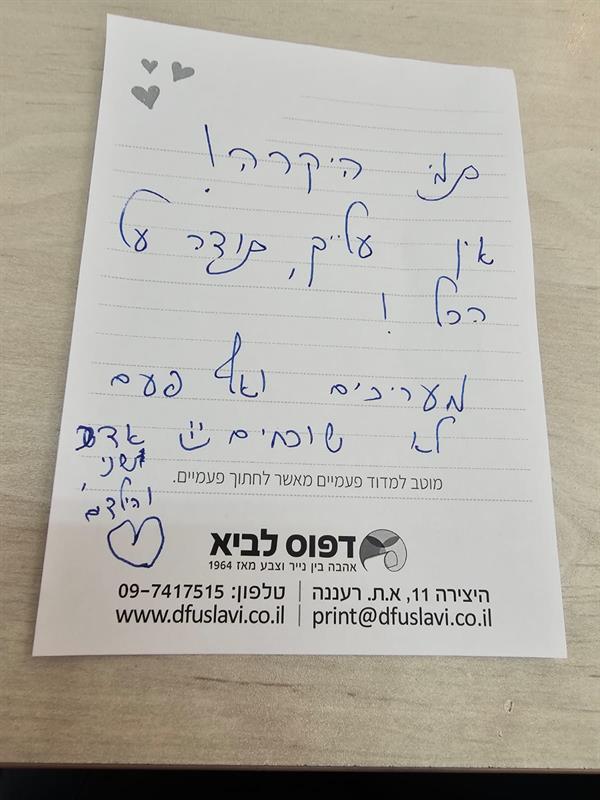 תמי היקרה!
אין עלייך, תודה על
הכל!
מעריכים ואף פעם
לא שוכחים
והילדים
מוטב למדוד פעמיים מאשר לחתוך פעמיים.
דפוס לביא
אהבה בין נייר וצבע מאז 1964
היצירה 11, א.ת. רעננה | טלפון: 09-7417515
www.dfuslavi.co.il | print@dfuslavi.co.il